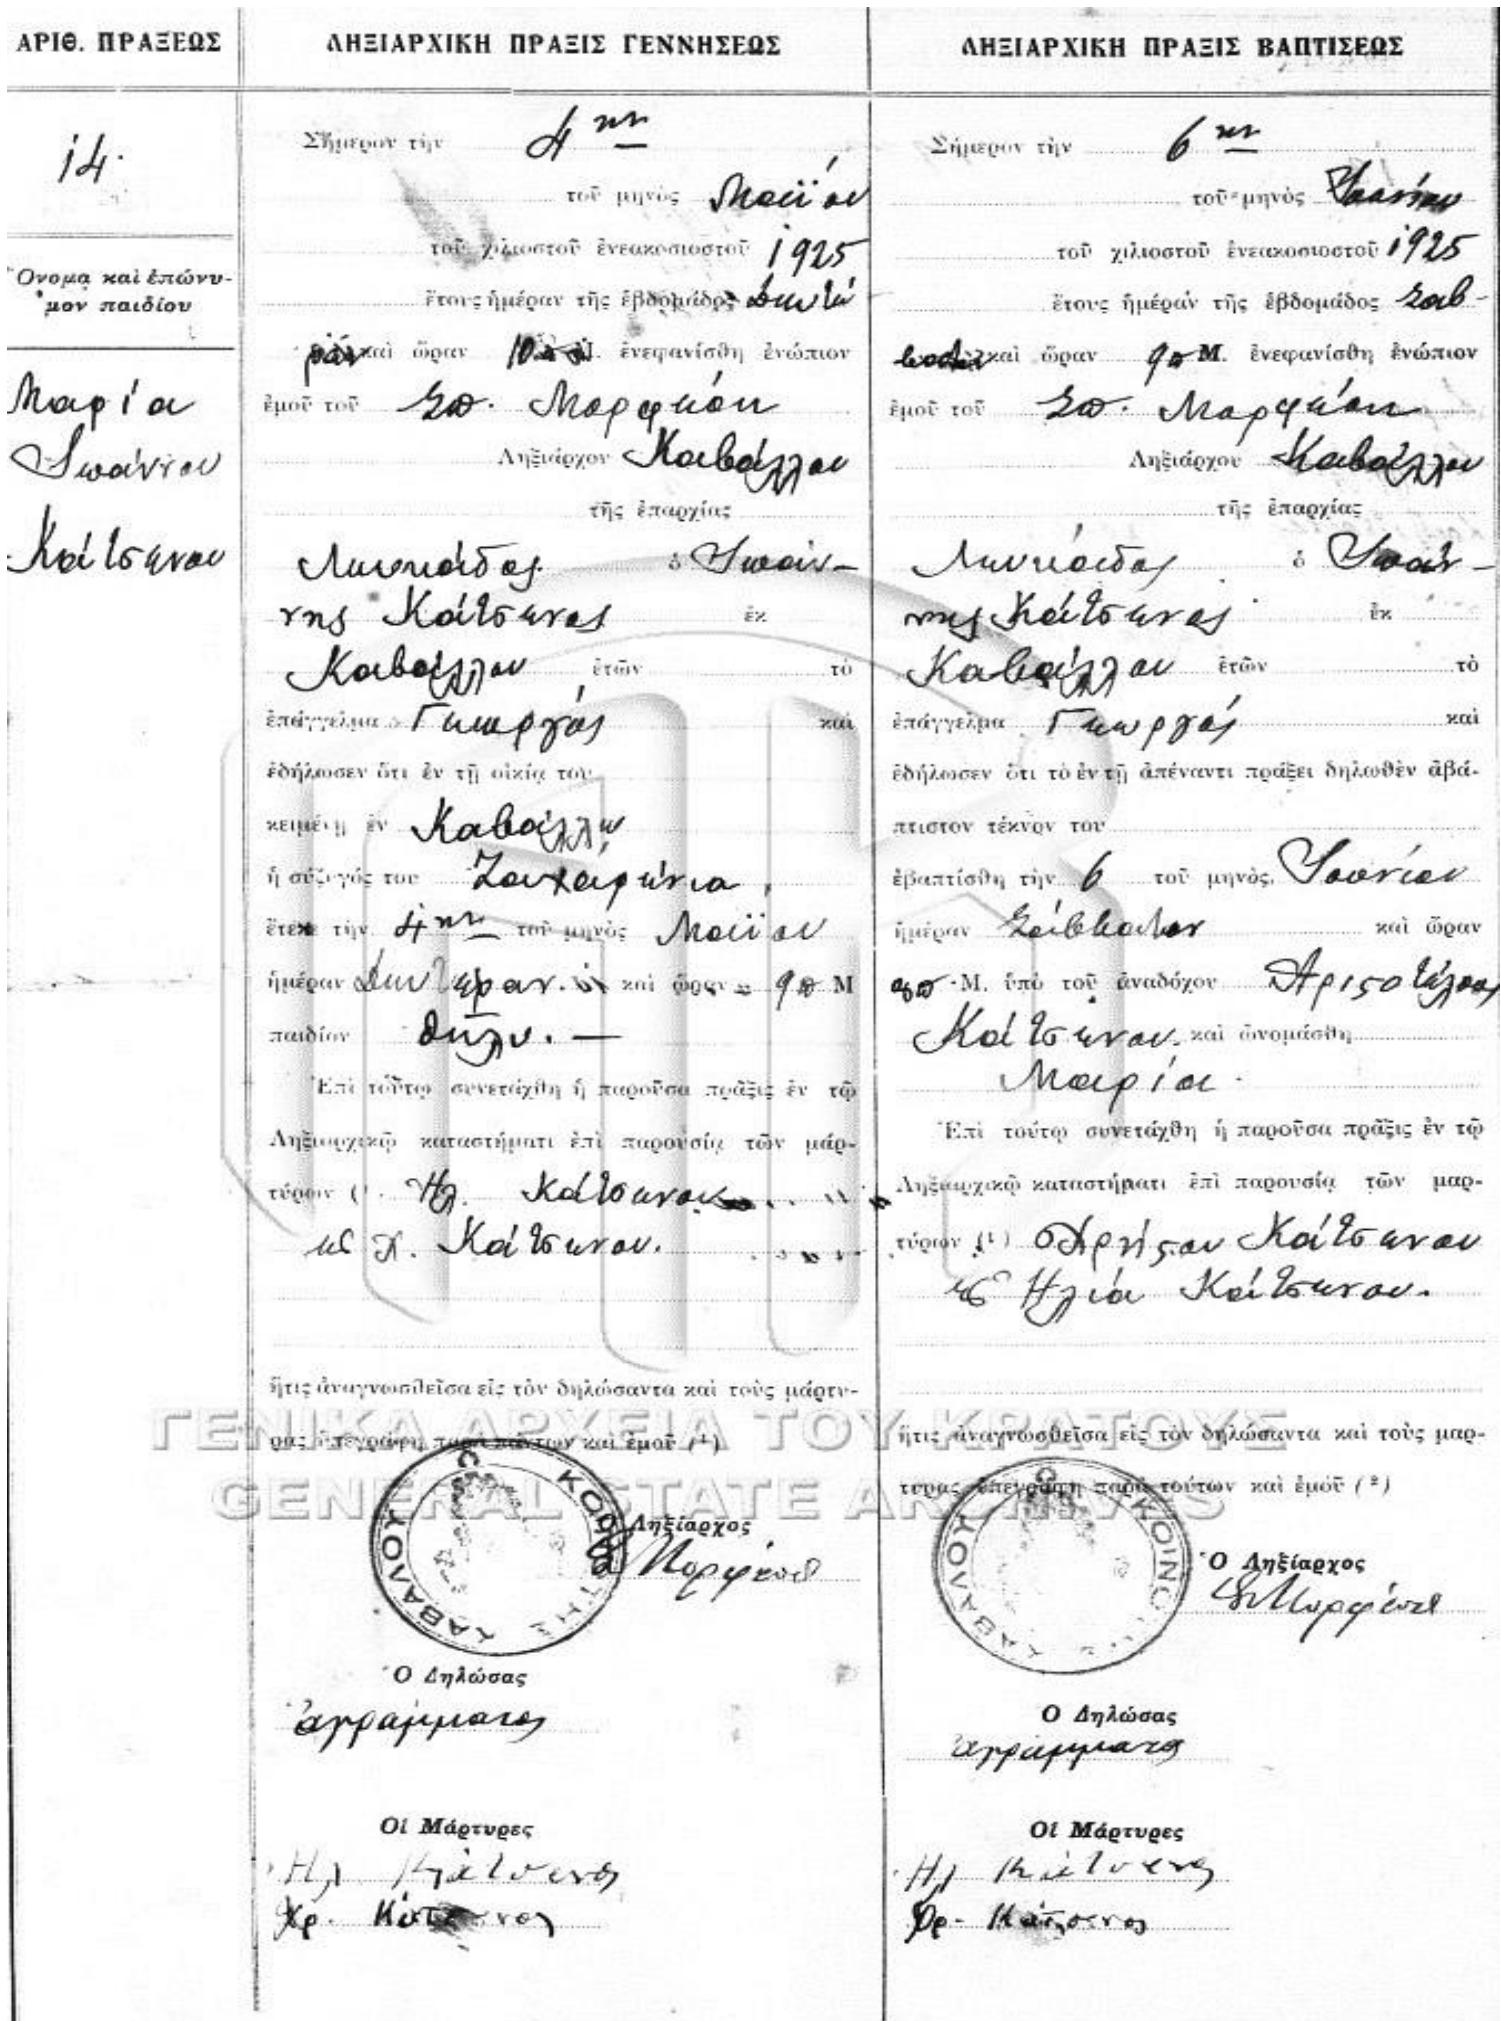 ΑΡΙΘ. ΠΡΑΞΕΩΣ
14.
Ὄνομα καὶ ἐπώνυ-
μον παιδίου
Μαρία
Ἰωάννου
Κάτσενου
ΛΗΞΙΑΡΧΙΚΗ ΠΡΑΞΙΣ ΓΕΝΝΗΣΕΩΣ
Σήμερον τὴν 4ην
τοῦ μηνὸς Μαΐου
τοῦ χιλιοστοῦ ἐνεακοσιοστοῦ 1925
ἔτους ἡμέραν τῆς ἑβδομάδος Δευτέ
ραν καὶ ὥραν 10 π Μ. ἐνεφανίσθη ἐνώπιον
ἐμοῦ τοῦ Σπ. Μορφέση
Ληξιάρχου Καβάλλου
τῆς ἐπαρχίας
Λευκάδος ὁ Ἰωάν-
νης Κάτσενος ἐκ
Καβάλλου ἐτῶν τὸ
ἐπάγγελμα Γεωργός καὶ
ἐδήλωσεν ὅτι ἐν τῇ οἰκίᾳ του
κειμένῃ ἐν Καβάλλῳ
ἡ σύζυγός του Ζαχαρένια,
ἔτεκε τὴν 4ην τοῦ μηνὸς Μαΐου
ἡμέραν Δευτέραν. καὶ ὥραν 9 π Μ
παιδίον θῆλυ. —
Ἐπὶ τούτῳ συνετάχθη ἡ παροῦσα πρᾶξις ἐν τῷ
Ληξιαρχικῷ καταστήματι ἐπὶ παρουσίᾳ τῶν μάρ-
τύρων (¹ Ἠλ. Κάτσενου
κ Χ. Κάτσενου.
ἥτις ἀναγνωσθεῖσα εἰς τὸν δηλώσαντα καὶ τοὺς μάρτυ-
ρας ὑπεγράφη παρὰ πάντων καὶ ἐμοῦ (¹)
ΚΟΙΝΟΤΗΣ ΚΑΒΑΛΟΥ
Ὁ Ληξίαρχος
Ὁ Δηλώσας
ἀγράμματος
Οἱ Μάρτυρες
Ηλ Κάτσενος
Χρ. Κάτσενος
ΛΗΞΙΑΡΧΙΚΗ ΠΡΑΞΙΣ ΒΑΠΤΙΣΕΩΣ
Σήμερον τὴν 6ην
τοῦ μηνὸς Ἰουνίου
τοῦ χιλιοστοῦ ἐνεακοσιοστοῦ 1925
ἔτους ἡμέραν τῆς ἑβδομάδος Σαβ-
βατον καὶ ὥραν 9 π Μ. ἐνεφανίσθη ἐνώπιον
ἐμοῦ τοῦ Σπ. Μορφέση
Ληξιάρχου Καβάλλου
τῆς ἐπαρχίας
Λευκάδος ὁ Ἰωάν-
νης Κάτσενος ἐκ
Καβάλλου ἐτῶν τὸ
ἐπάγγελμα Γεωργός καὶ
ἐδήλωσεν ὅτι τὸ ἐν τῇ ἀπέναντι πράξει δηλωθὲν ἀβά-
πτιστον τέκνον του
ἐβαπτίσθη τὴν 6 τοῦ μηνὸς Ἰουνίου
ἡμέραν Σάββατον καὶ ὥραν
π Μ. ὑπὸ τοῦ ἀναδόχου Ἀριστοτέλους
Κάτσενου. καὶ ὠνομάσθη
Μαρία.
Ἐπὶ τούτῳ συνετάχθη ἡ παροῦσα πρᾶξις ἐν τῷ
Ληξιαρχικῷ καταστήματι ἐπὶ παρουσίᾳ τῶν μαρ-
τύρων (¹) Χρήστου Κάτσενου
κ Ηλία Κάτσενου.
ἥτις ἀναγνωσθεῖσα εἰς τὸν δηλώσαντα καὶ τοὺς μαρ-
τυρας ὑπεγράφη παρὰ τούτων καὶ ἐμοῦ (²)
ΚΟΙΝΟΤΗΣ ΚΑΒΑΛΟΥ
Ὁ Ληξίαρχος
Ὁ Δηλώσας
ἀγράμματος
Οἱ Μάρτυρες
Ηλ Κάτσενος
Χρ. Κάτσενος
ΓΕΝΙΚΑ ΑΡΧΕΙΑ ΤΟΥ ΚΡΑΤΟΥΣ
GENERAL STATE ARCHIVES